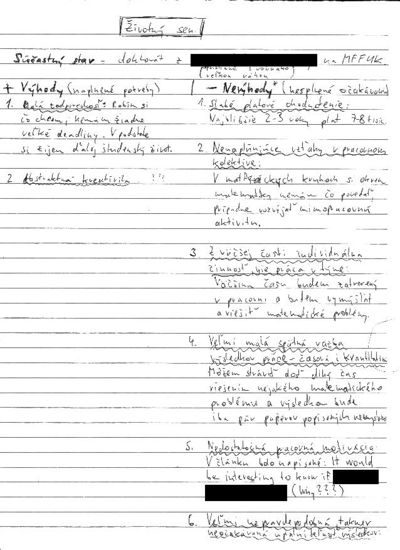 Životný sen
Súčastný stav - doktorát z na MFF UK.
+ Výhody (naplnené potreby)
1. Malá zodpovednosť: Robím si
čo chcem, nemám žiadne
veľké deadliny. V podstate
si žijem ďalej študentský život.
2. Abstraktná kreativita !!!
- Nevýhody (nesplnené očakávania)
1. Slabé platové ohodnotenie:
Najbližšie 2-3 roky plat 7-8 tisíc.
2. Nenaplňujúce vzťahy v pracovnom
kolektíve:
V matfyzáckych kruhoch si okrem
matematiky nemám čo povedať
prípadne rozvíjať mimopracovnú
aktivitu.
3. Z väčšej časti individuálna
činnosť, nie práca v tíme:
Väčšinu času budem zatvorený
v pracovni a budem vymýšľať
a riešiť matematické problémy.
4. Veľmi malá spätná väzba
výsledkov práce - časová i kvantitatívna
Môžem stráviť dosť dlhý čas
riešením nejakého matematického
problému a výsledkom bude
iba pár papierov popísaných
5. Nedostatočná pracovná motivácia
V článku bolo napísané: It would
be interesting to know if
(Why???)
6. Veľmi nepravdepodobná takmer
výsledkov: